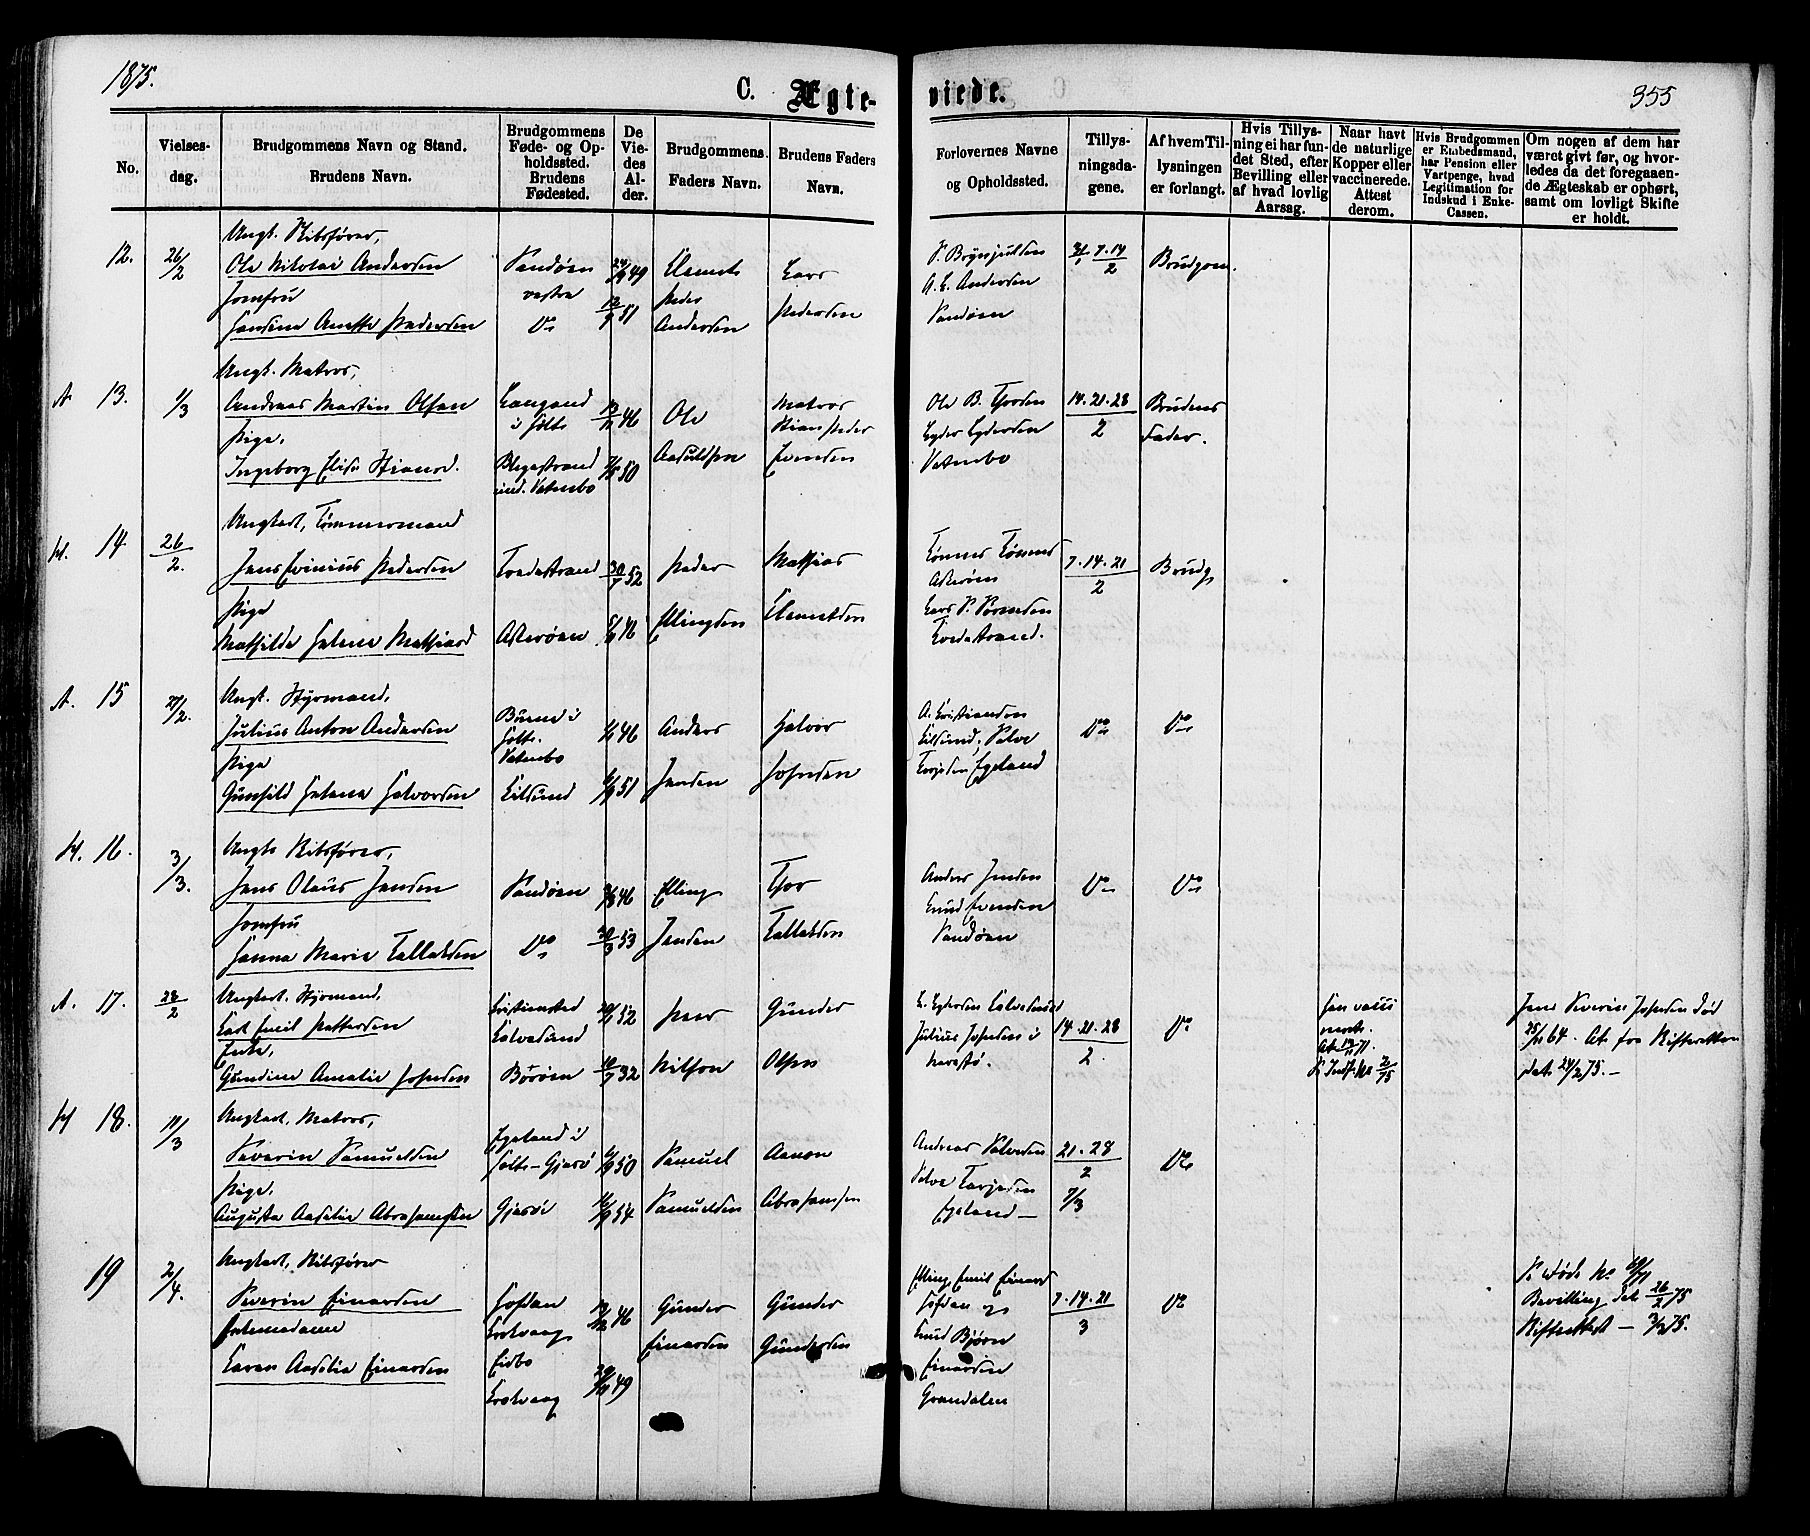 1875.
C. Ægteviede.
355
No.
Vielsesdag.
Brudgommens Navn og Stand.
Brudens Navn.
Brudgommens Føde- og Opholdssted. Brudens Fødested.
De Viedes Alder.
Brudgommens Faders Navn.
Brudens Faders Navn.
Forlovernes Navne og Opholdssted.
Tillysningsdagene.
Af hvem Tillysningen er forlangt.
Hvis Tillysning ei har fundet Sted, efter Bevilling eller af hvad lovlig Aarsag.
Naar havt de naturlige Kopper eller vaccinerede. Attest derom.
Hvis Brudgommen er Embedsmand, har Pension eller Vartpenge, hvad Legitimation for Indskud i Enke-Cassen.
Om nogen af dem har været givt før, og hvorledes da det foregaaende Ægteskab er ophørt, samt om lovligt Skifte er holdt.
12. 26/2
Ungk. Skibsfører,
Ole Nikolai Andersen
Jomfru
Hansine Anette Pedersen
Sandøen vestre
Do
24/9 49
12/9 51
Clemet Peder Andersen
Lars Pedersen
S. Brynjulsen
A. C. Andersen
Sandøen
31/1 7. 14/2
Brudgom.
A. 13. 1/3
Ungk. Matros,
Andreas Martin Olsen
Pige,
Ingeborg Elise Stiansd.
Langand i Holt
46
50
Ole Aasulfsen
Matros Stian Peder Evensen
Ole B. Thorsen
Eyder Eydersen
Vatnebo
14. 21. 28/2
Brudens Fader.
H. 14. 26/2.
Ungkarl, Tømmermand
Jens Evinius Pedersen
Pige
Mathilde Helene Mathiasd
Tvedestrand
Askerøen
30/7 52
46
Peder Ellingsen
Mathias Clemetsen
Tønnes Tønnes
Askerøen
Lars S. Sørensen
Tvedestrand.
7. 14. 21/2
Brudg
A. 15 27/2.
Ungk. Styrmand,
Julius Anton Andersen
Pige
Gunhild Helene Halvorsen
Holt.
Vatnebo
Lilsund
46
51
Anders Jensen
Halvor Johnsen
A. Cristiansen
Lilsund, Salve
Terjesen Egeland
Do
Do
H. 16. 3/3.
Ungk. Skibsfører,
Jens Olaus Jensen
Jomfru
Hanna Marie Tallaksen
Sandøen
Do
46
30/3 53
Elling Jensen
Thor Tallaksen
Anders Jensen
Knud Evensen
Sandøen
Do
Do
A. 17. 28/2
Ungkarl. Styrmand,
Carl Emil Pettersen
Enke,
Gundine Amalie Johnsen
Christiansted
Calvesund
Børøen
52
32
Peer Nilsson
Gunder Olsen
Julius Johnsen i
Narestø.
14. 21. 28/2.
Do
Jens Severin Johnsen død
25/11 64. At. fra Skifteretten
dat. 24/2 75. —
H 18. 11/3
Ungkarl, Matros,
Severin Samuelsen
Pige,
Augusta Aaselie Abrahamsen
Egeland i Holt - Gjesø
Gjesøi
50
54
Samuel Samuelsen
Aanon Abrahamsen
Andreas Salvesen
Salve Terjesen
Egeland —
21. 28/2
7/3
Do
19 2/4.
Ungkarl, Skibsfører
Severin Einersen
Enkemadame
Karen Aaselie Einersen
Hofdan
Krokvaag
Eidbo
Krokvaag
46
49
Gunder Einersen
Gunder Gundersen
Elling Emil Einers
Hofdan og
Knud Bjørn
Einersen
Grandalen
7. 14. 21/3
Do
S. Døde No 69/71
Bevilling dat 26/2 75
Skifteattest — 3/2 75.